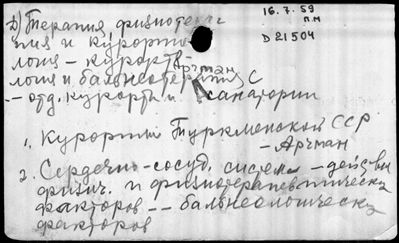 Д) Терапия физиотера
пия и курорто
логия – курорто-
логия и бальнеотерапия
Арчман С
– отд. курорты и санатории
16.7.59
п.м
D 21504
1. Курорты Туркменской ССР
– Арчман
2. Сердечно-сосуд. система – действ
физич. и физиотерапевтическ
факторов – – бальнеологическ
факторов